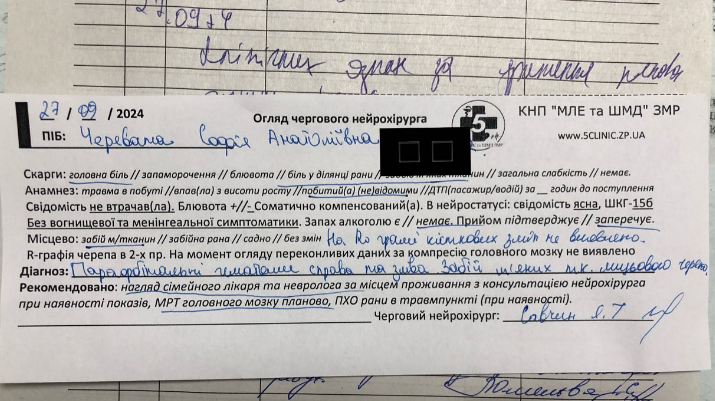 27.09.24
клінічних ознак за
27 / 09 / 2024
Огляд чергового нейрохірурга
5
КНП "МЛЕ та ШМД" ЗМР
ПІБ: Черевата Софія Анатоліївна
WWW.5CLINIC.ZP.UA
Скарги: головна біль // запаморочення // блювота // біль у ділянці рани // забою м'яких тканин // загальна слабкість // немає.
Анамнез: травма в побуті //впав(ла) з висоти росту //побитий(а) (не)відомими //ДТП(пасажир/водій) за __ годин до поступлення
Свідомість не втрачав(ла). Блювота +//- Соматично компенсований(а). В нейростатусі: свідомість ясна, ШКГ-15б
Без вогнищевої та менінгеальної симптоматики. Запах алкоголю є // немає. Прийом підтверджує // заперечує.
Місцево: забій м/тканин // забійна рана // садно // без змін На Ro грамі кісткових змін не виявлено.
R-графія черепа в 2-х пр. На момент огляду переконливих даних за компресію головного мозку не виявлено
Діагноз: Параорбітальні гематоми справа та зліва. Забій м'яких тк. лицьового черепа.
Рекомендовано: нагляд сімейного лікаря та невролога за місцем проживання з консультацією нейрохірурга
при наявності показів, МРТ головного мозку планово, ПХО рани в травмпункті (при наявності).
Черговий нейрохірург: Савчин Я.Т